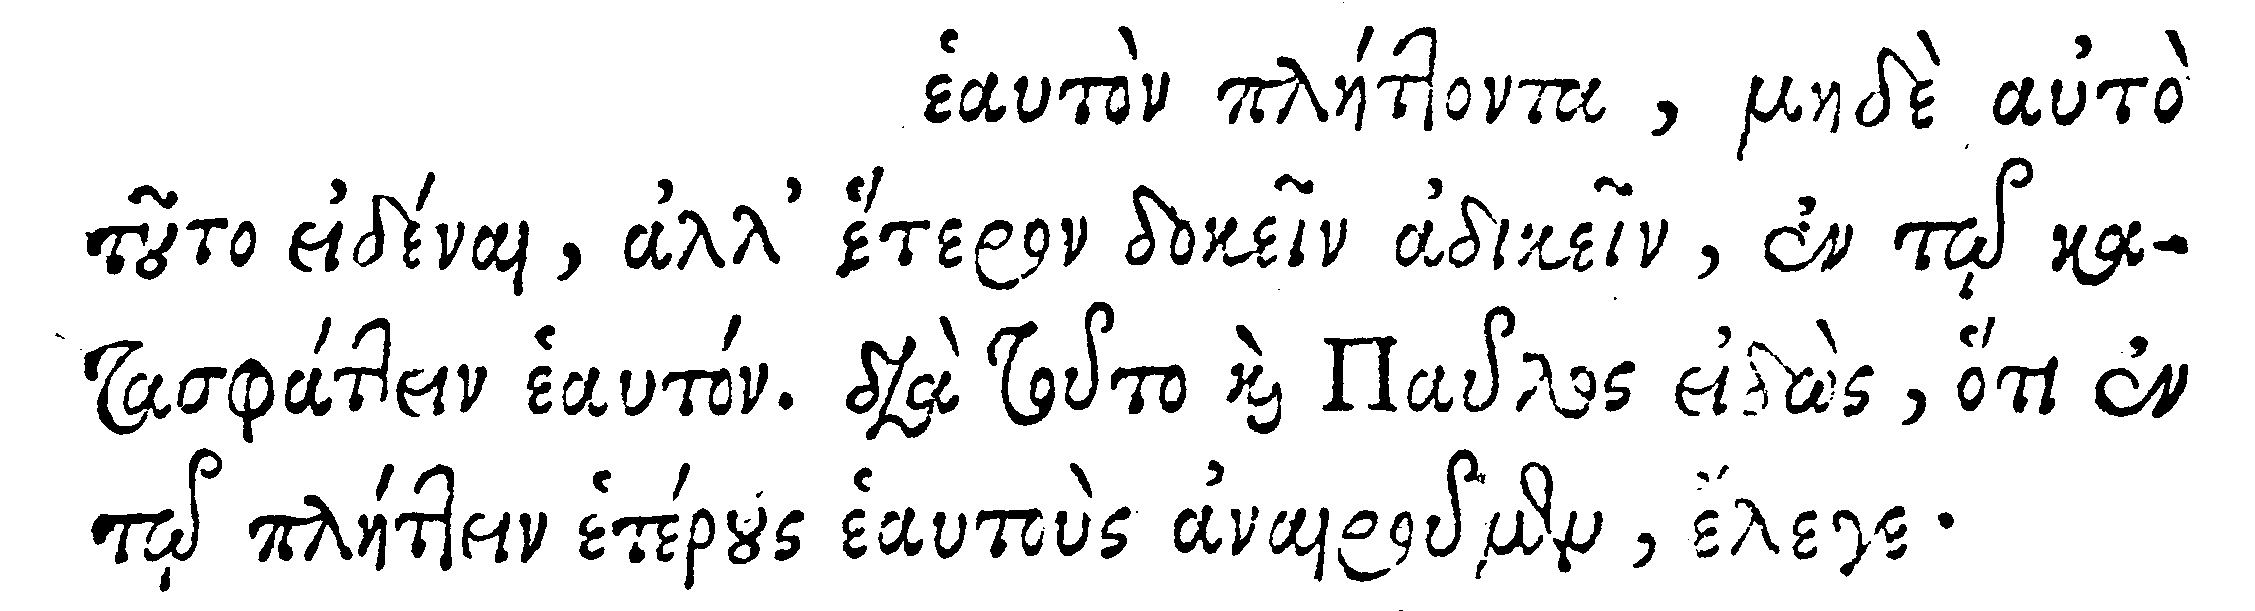 ἑαυτὸν πλήττοντα, μηδὲ αὐτὸ
τοῦτο εἰδέναι, ἀλλ' ἕτερον δοκεῖν ἀδικεῖν, ἐν τῷ κα-
τασφάττειν ἑαυτόν. διὰ τοῦτο καὶ Παῦλος εἰδὼς, ὅτι ἐν
τῷ πλήττειν ἑτέρους ἑαυτοὺς ἀναιροῦμεν, ἔλεγε·